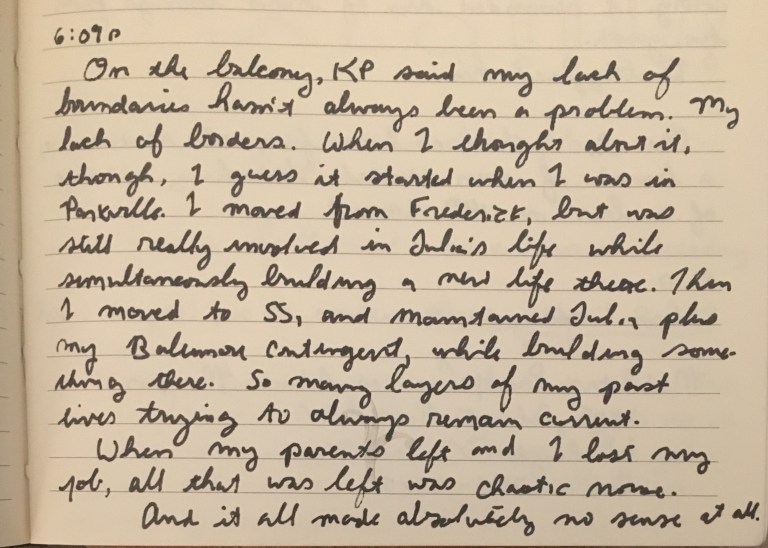 6:09p
On the balcony, KP said my lack of
boundaries hasn't always been a problem. My
lack of borders. When I thought about it,
though, I guess it started when I was in
Parkville. I moved from Frederick, but was
still really involved in Julia's life while
simultaneously building a new life there. Then
I moved to SS, and maintained Julia plus
my Baltimore contingent, while building some-
thing there. So many layers of my past
lives trying to always remain current.
When my parents left and I lost my
job, all that was left was chaotic noise.
And it all made absolutely no sense at all.